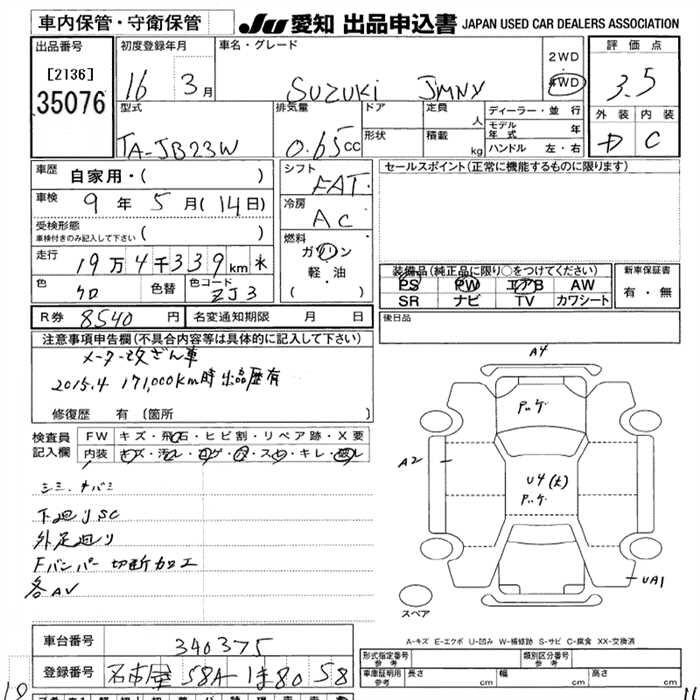 車内保管・守衛保管
JU 愛知 出品申込書 JAPAN USED CAR DEALERS ASSOCIATION
出品番号
[2136]
35076
初度登録年月
16 3月
車名・グレード
SUZUKI JMNY
2WD
・
4WD
評価点
3.5
外装 内装
D C
型式
TA-JB23W
排気量
0.65cc
ドア
形状
定員
人
積載
kg
ディーラー・並行
モデル年式 年
ハンドル 左・右
車歴
自家用・( )
車検
9年 5月(14日)
受検形態
車検付きのみ記入して下さい ( )
走行
19万4千339km
色
クロ
色替
色コード
ZJ3
シフト
FAT
冷房
AC
燃料
ガソリン
軽・油
( )
セールスポイント(正常に機能するものに限ります)
装備品(純正品に限り○をつけてください)
PS PW エアB AW
SR ナビ TV カワシート
新車保証書
有・無
後日品
R券 8540円
名変通知期限 月 日
注意事項申告欄(不具合内容等は具体的に記入して下さい)
メーター改ざん車
2015.4 171,000km時出品歴有
修復歴 有 〔箇所 〕
検査員記入欄
FW キズ・飛石・ヒビ割・リペア跡・X要
内装 キズ・汚レ・コゲ・穴・スレ・キレ・破レ
シミ・ナバミ
下廻りSC
外足廻り
Fバンパー切断加工
各AV
A4
Pハゲ
A2
U4(大)
Pハゲ
UA1
スペア
A-キズ E-エクボ U-凹み W-補修跡 S-サビ C-腐食 XX-交換済
車台番号
340375
登録番号
名古屋 58A 1ま80 58
形式指定番号
参考
類別区分番号
参考
車庫証明用
参考
長さ cm
幅 cm
高さ cm